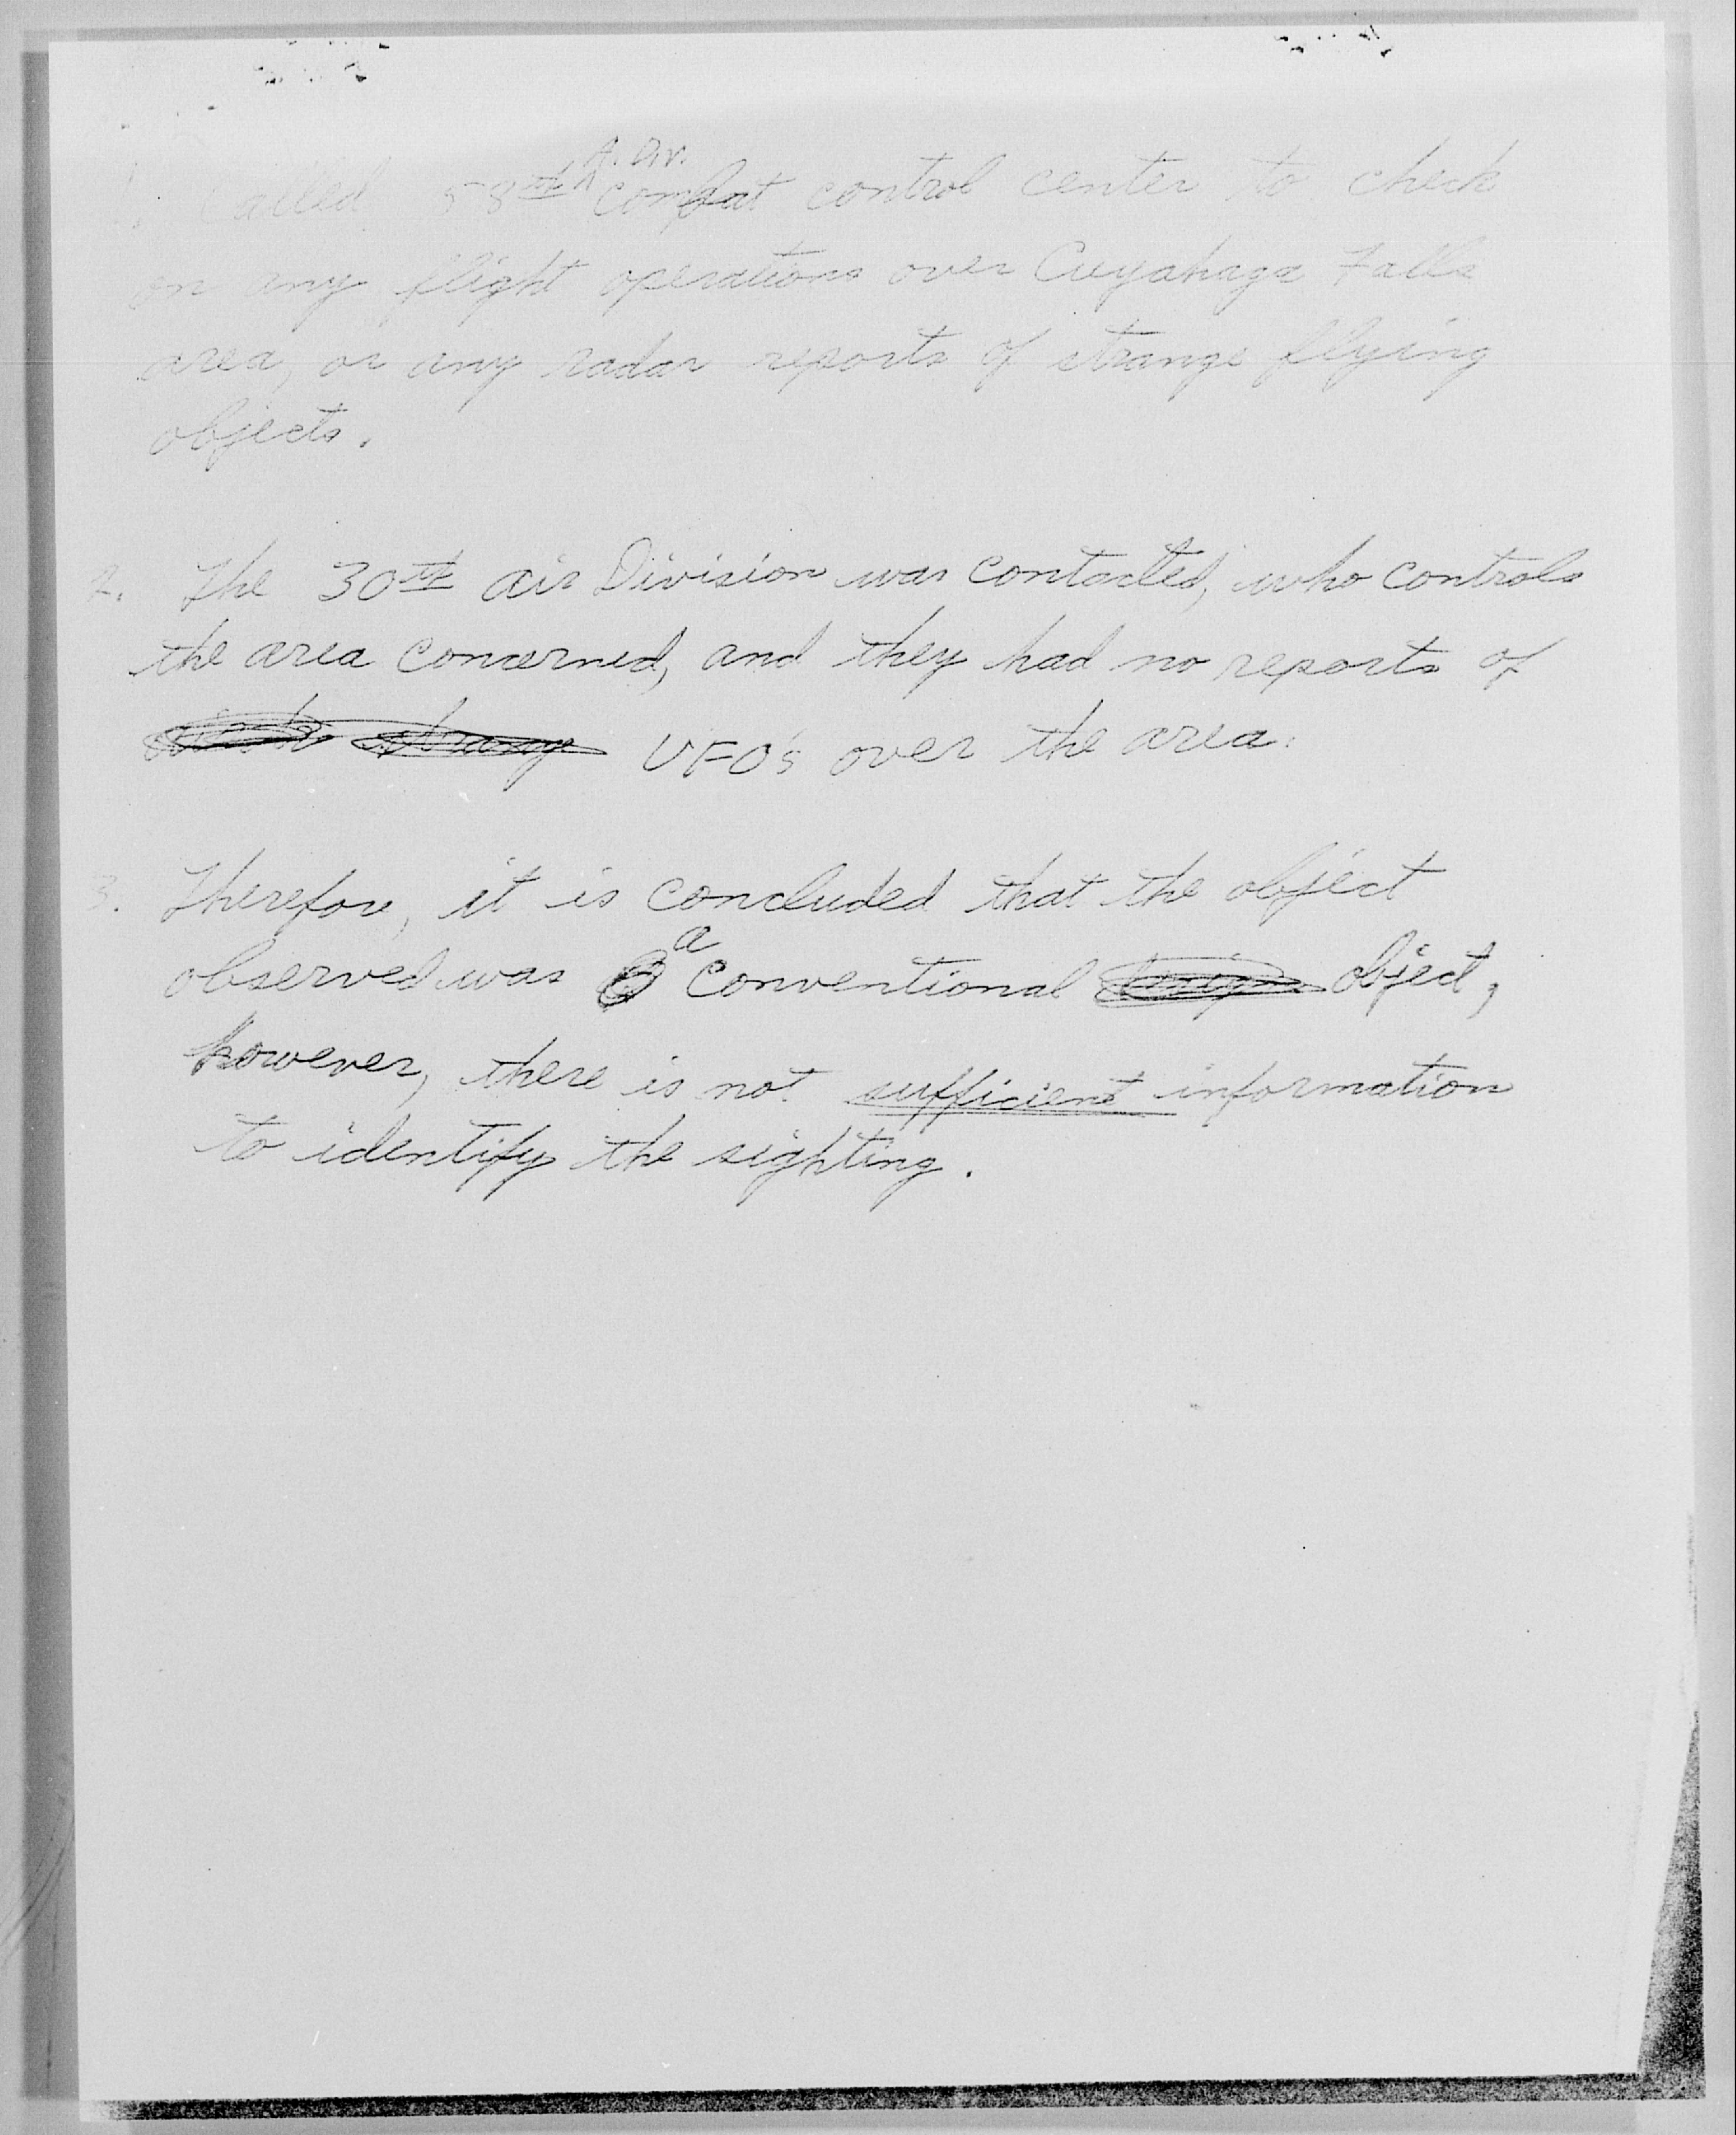 1. Called 58th A. Div. combat control center to check
on any flight operations over Cuyahaga Falls
area, or any radar reports of strange flying
objects.
2. The 30th air Division was contacted, who controls
the area concerned, and they had no reports of
strange UFO's over the area.
3. Therefore, it is concluded that the object
observed was a conventional object,
however, there is not sufficient information
to identify the sighting.